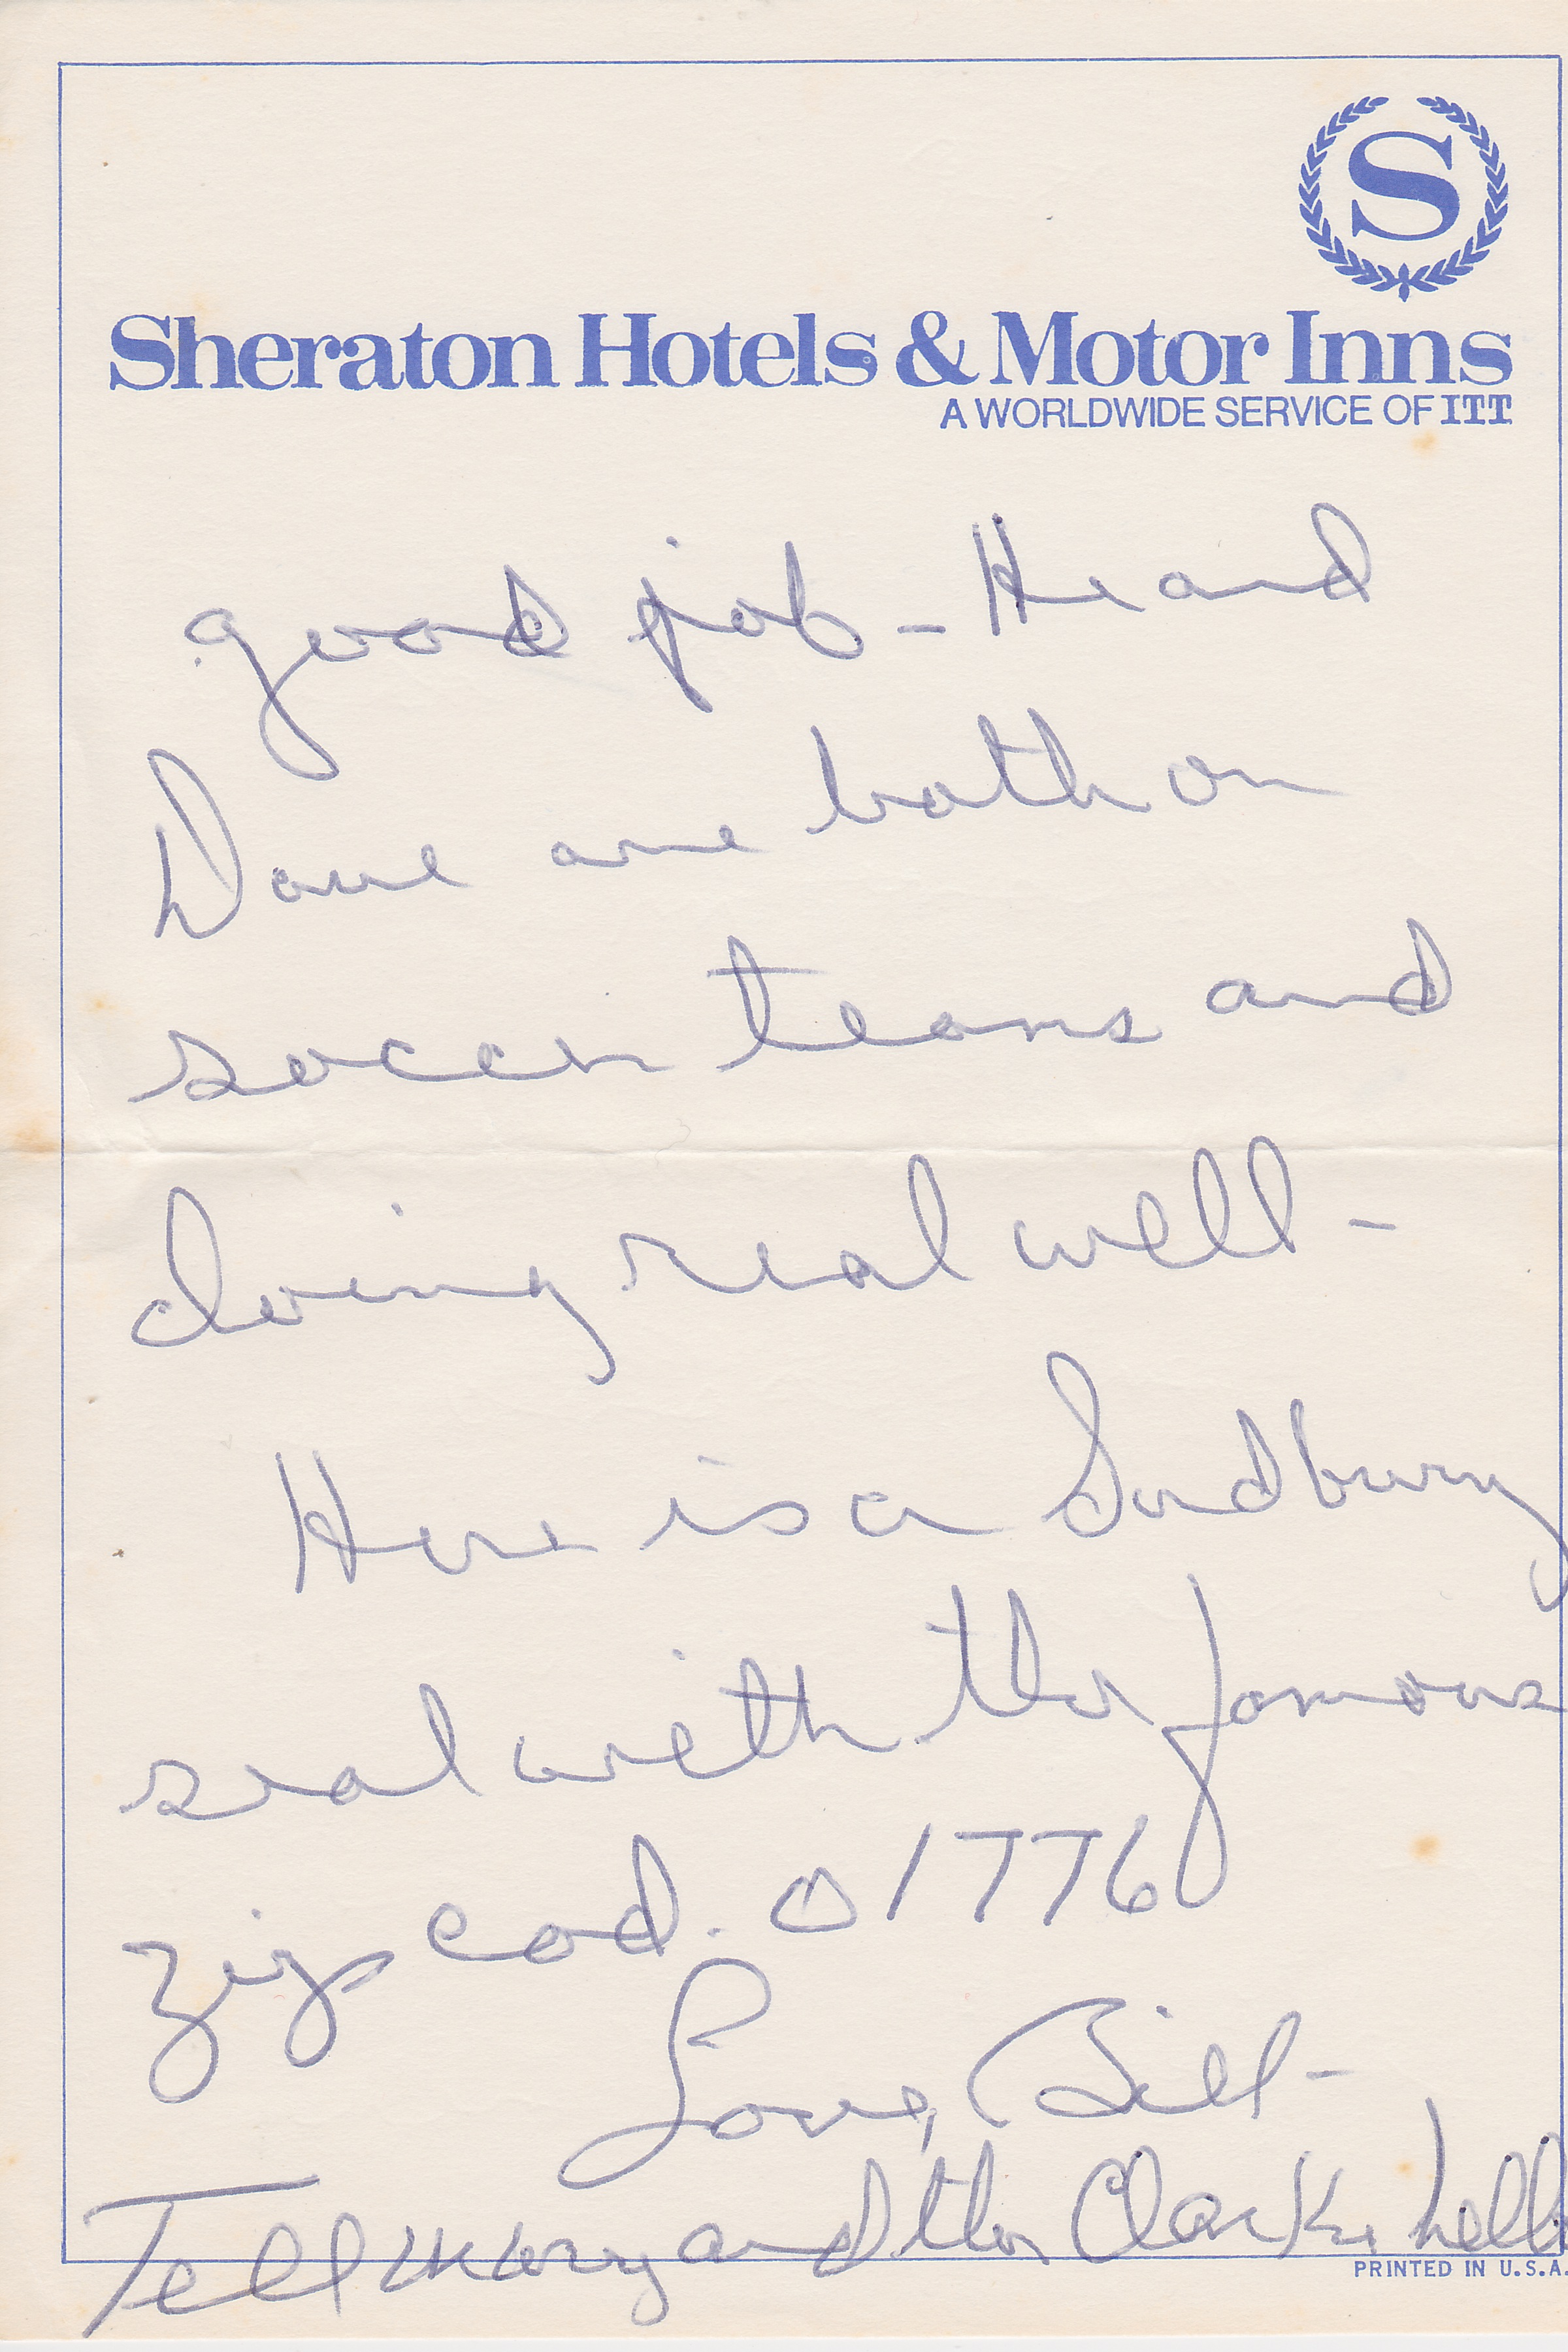 S
Sheraton Hotels & Motor Inns
A WORLDWIDE SERVICE OF ITT
good job - He and
Dave are both on
soccer teams and
doing real well -
Here is a Sudbury
seal with the famous
zip cod. 01776
Love, Bill -
Tell Mary and the Clarks hello
PRINTED IN U.S.A.